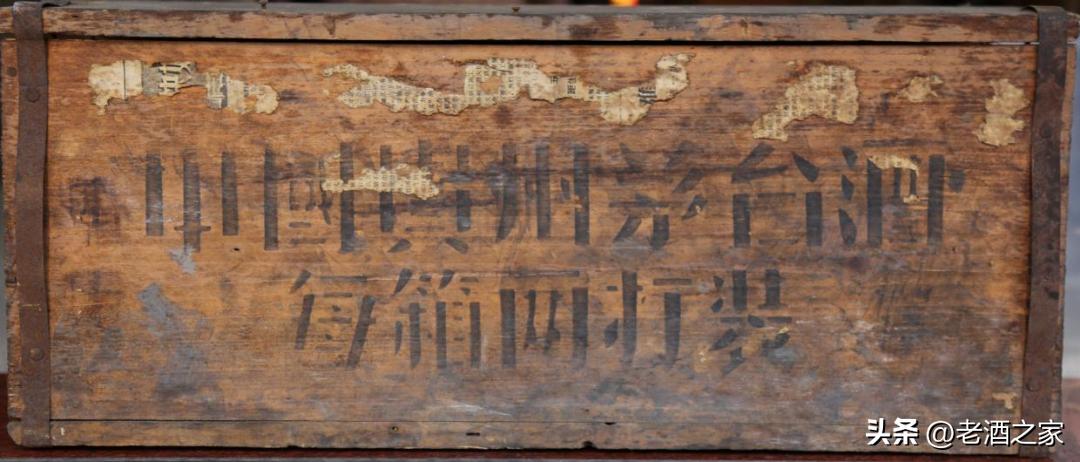 中國貴州茅台酒
每箱两打装
头条 @老酒之家